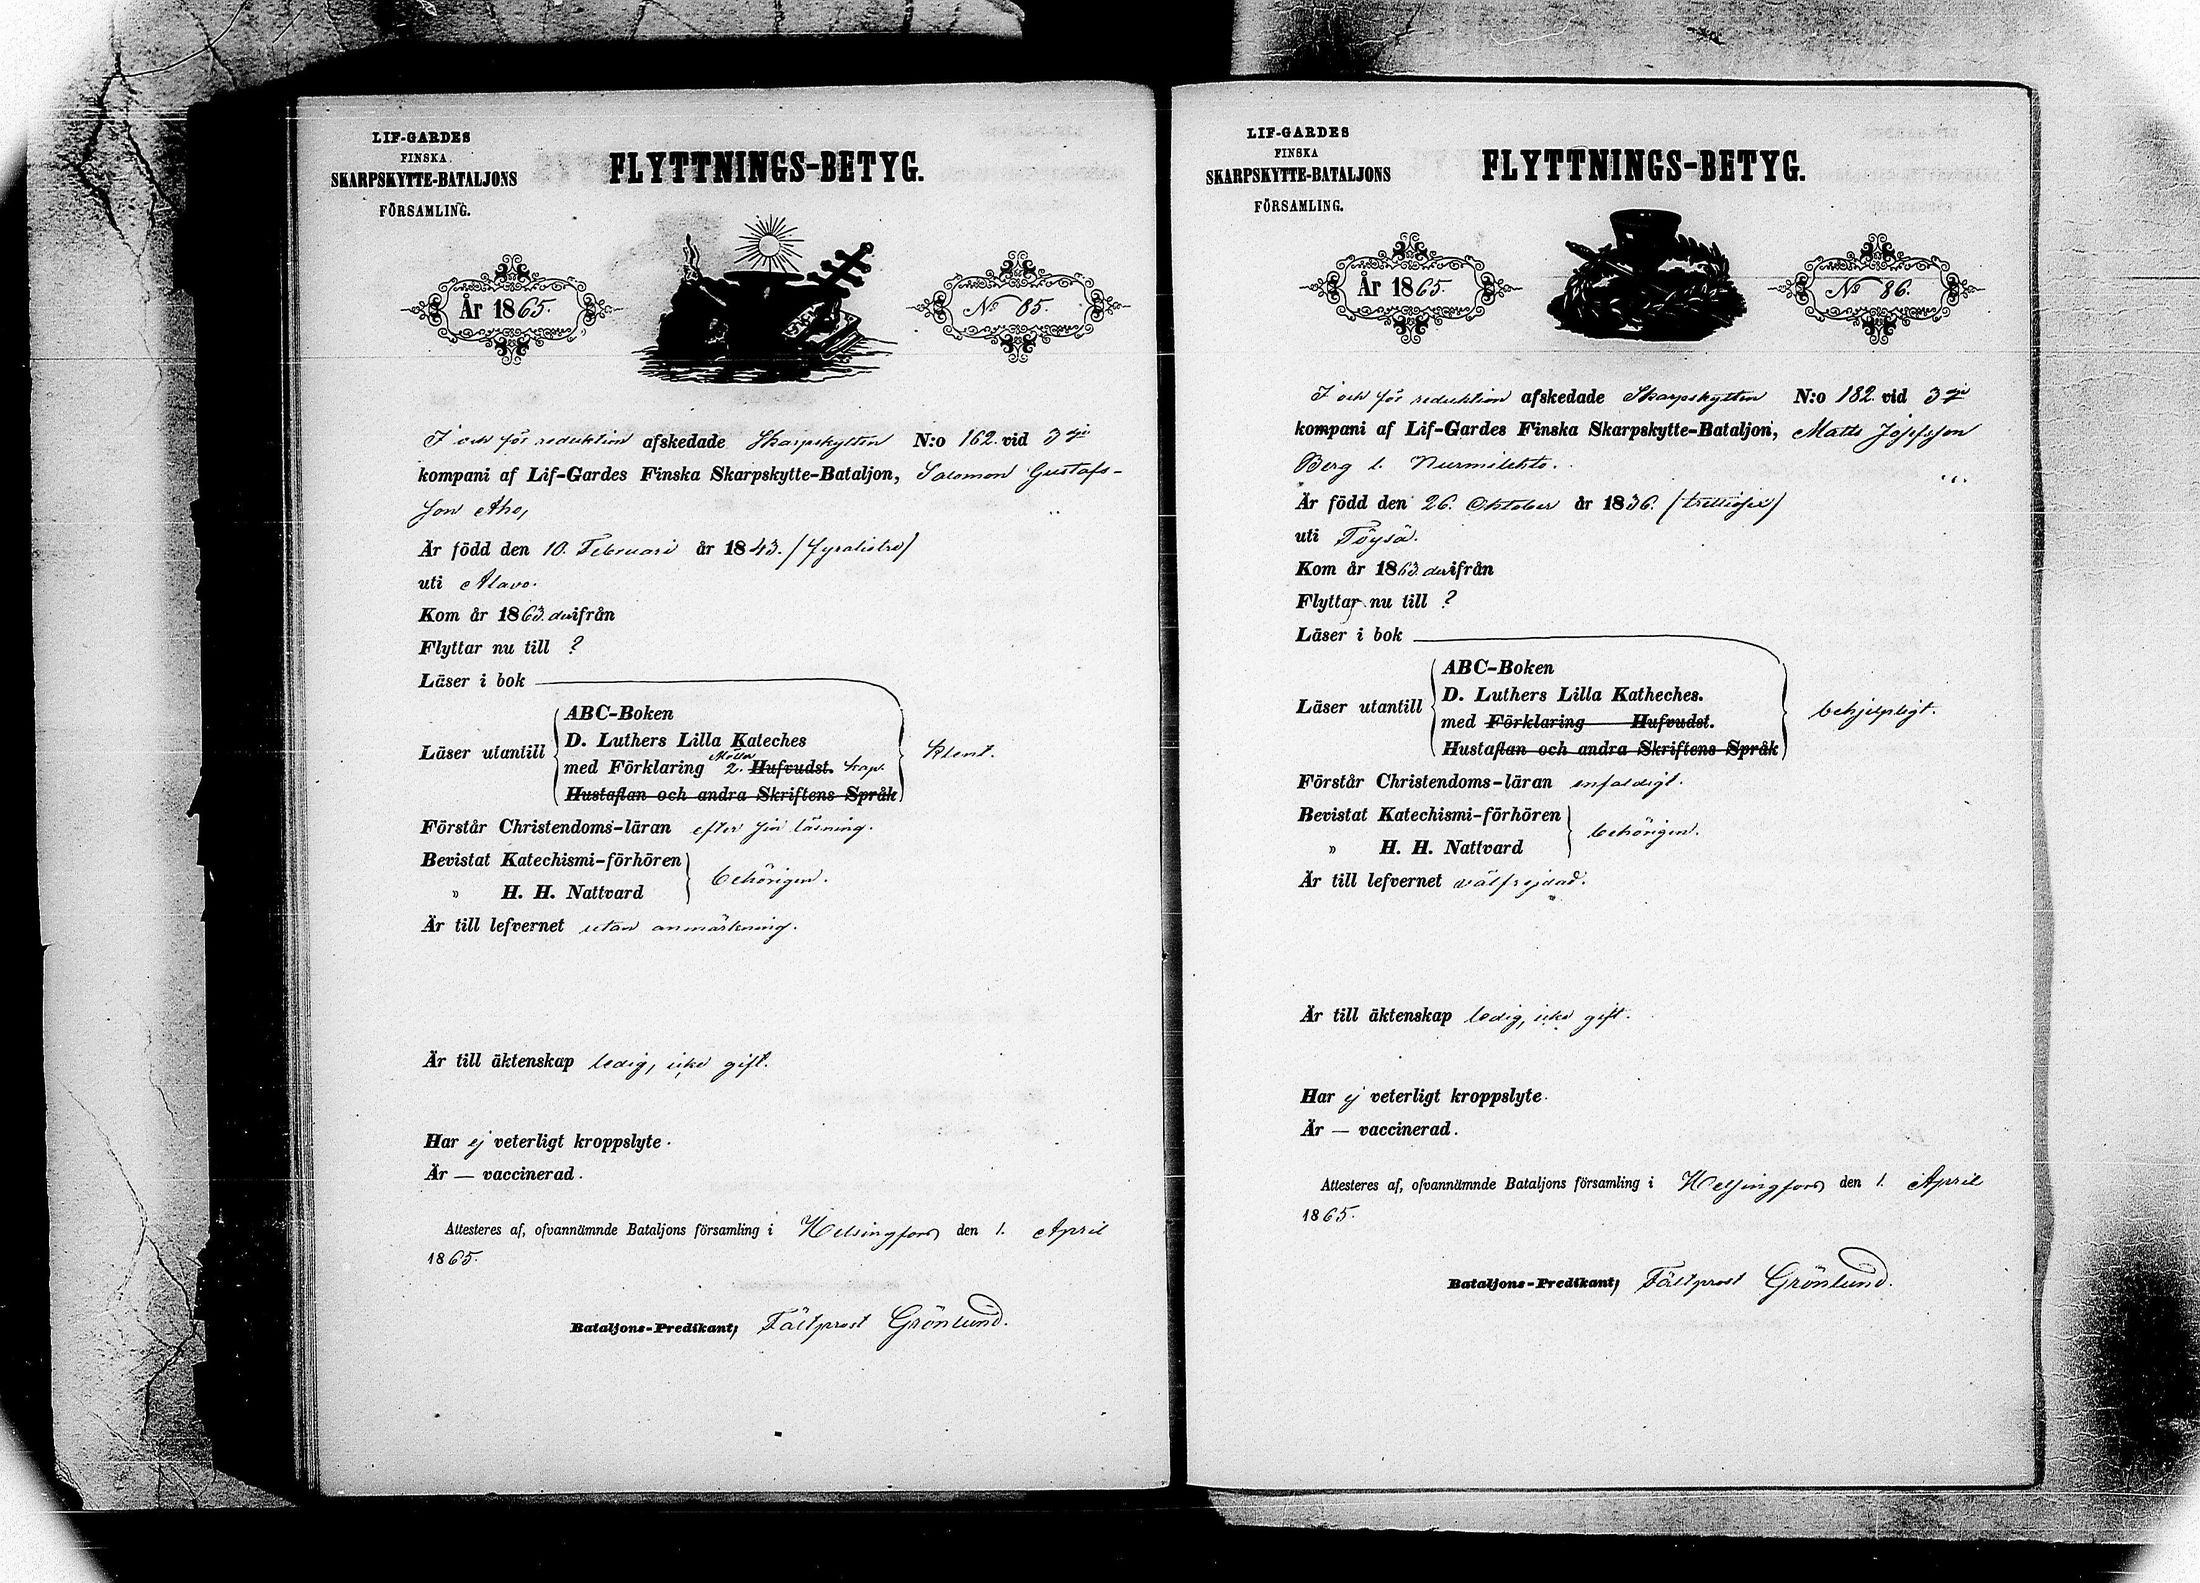 LIF-GARDES
FINSKA
SKARPSKYTTE-BATALJONS
FÖRSAMLING.
FLYTTNINGS-BETYG.
År 1865.
No 85.
I och för reduktion afskedade Skarpskytten N:o 162. vid 3dje
kompani af Lif-Gardes Finska Skarpskytte-Bataljon, Salomon Gustafs-
son Aho,
Är född den 10. Februari år 1843. (fyratiotre)
uti Alavo.
Kom år 1863. derifrån
Flyttar nu till ?
Läser i bok
ABC-Boken
Läser utantill D. Luthers Lilla Kateches
med Förklaring 2. Hufvudst. kap. klent.
Hustaflan och andra Skriftens Språk
Förstår Christendoms-läran efter sin läsning.
Bevistat Katechismi-förhören
" H. H. Nattvard behörigen.
Är till lefvernet utan anmärkning.
Är till äktenskap ledig, icke gift.
Har ej veterligt kroppslyte.
Är — vaccinerad.
Attesteres af, ofvannämnde Bataljons församling i Helsingfors den 1. April
1865.
Bataljons-Predikant, Fältprost Grönlund.
LIF-GARDES
FINSKA
SKARPSKYTTE-BATALJONS
FÖRSAMLING.
FLYTTNINGS-BETYG.
År 1865.
No 86.
I och för reduktion afskedade Skarpskytten N:o 182. vid 3dje
kompani af Lif-Gardes Finska Skarpskytte-Bataljon, Matts Josefsson
Berg l. Nurmilehto.
Är född den 26. Oktober år 1836. (trettiosex)
uti Töysä.
Kom år 1863. derifrån
Flyttar nu till ?
Läser i bok
ABC-Boken
Läser utantill D. Luthers Lilla Katheches.
med Förklaring Hufvudst. behjelpligt.
Hustaflan och andra Skriftens Språk
Förstår Christendoms-läran enfaldigt.
Bevistat Katechismi-förhören
" H. H. Nattvard behörigen.
Är till lefvernet välfrejdad.
Är till äktenskap ledig, icke gift.
Har ej veterligt kroppslyte.
Är — vaccinerad.
Attesteres af, ofvannämnde Bataljons församling i Helsingfors den 1. April
1865.
Bataljons-Predikant, Fältprost Grönlund.